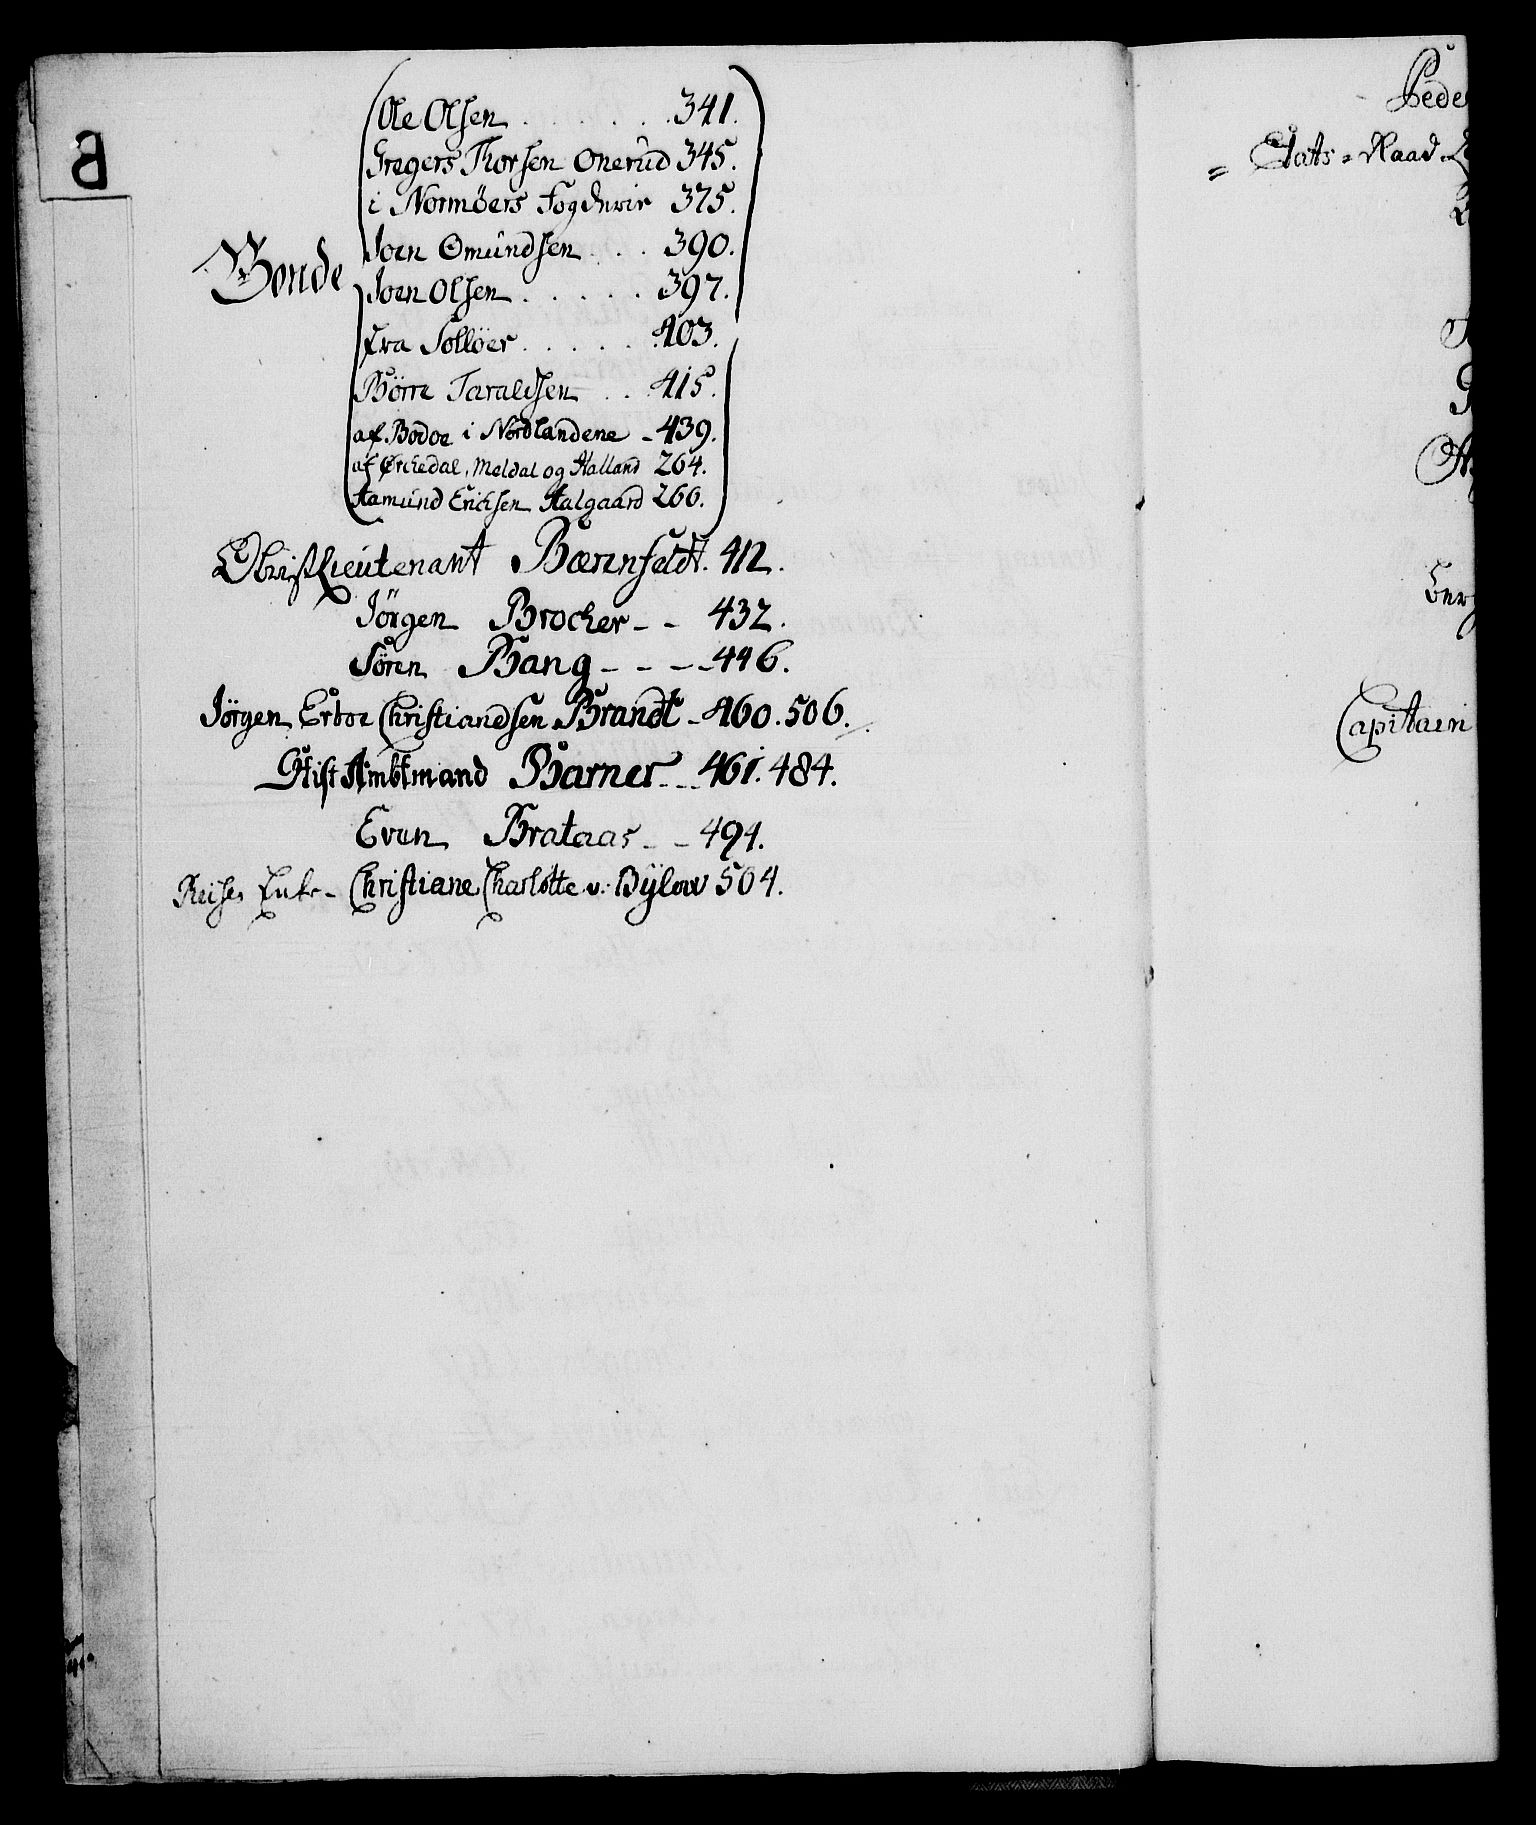 B
Ole Olsen . . . . . . 341.
Gregers Thorsen Onerud 345.
i Normöers Fogderie 375.
Bonde
Joen Omundsen . . . 390.
Joen Olsen . . . . . 397.
fra Sollöer . . . . . 403.
Börre Taraldsen . . 415.
af Bodoe i Nordlandene - 439.
af Örchedal, Meldal og Stalland 264.
Aamund Erichsen Aalgaard 266.
ObristLieutenant Bærenfeldt. 412.
Jörgen Brocher - - 432.
Sören Bang - - - - 446.
Jörgen Erboe Christiandsen Brandt - 460. 506.
Stift Ambtmand Barner - - - 461. 484.
Even Brataas - - 494.
Enke - Christiane Charlotte v. Bÿlow 504.
Pede
= Etats = Raad
Capitain